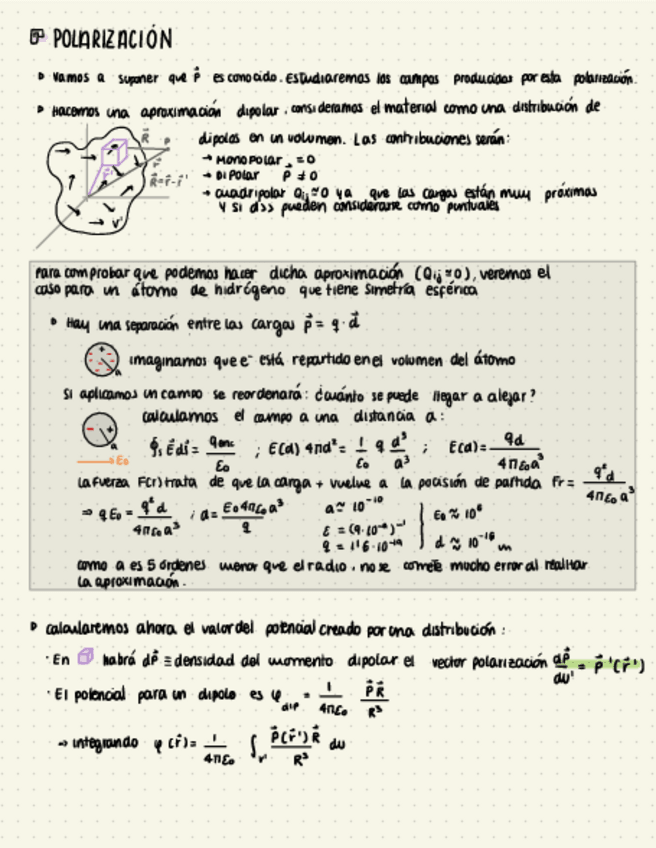 POLARIZACIÓN
Vamos a suponer que P⃗ es conocido. Estudiaremos los campos producidos por esta polarización.
Hacemos una aproximación dipolar, consideramos el material como una distribución de
dipolos en un volumen. Las contribuciones serán:
→ Monopolar = 0
→ Dipolar P⃗ ≠ 0
→ cuadripolar Qij ≈ 0 ya que las cargas están muy próximas
y si d>> pueden considerarse como puntuales
R⃗ P
r⃗
r⃗' R⃗ = r⃗ - r⃗'
V'
Para comprobar que podemos hacer dicha aproximación (Qij ≈ 0), veremos el
caso para un átomo de hidrógeno que tiene simetría esférica
Hay una separación entre las cargas p⃗ = q · d⃗
imaginamos que e⁻ está repartido en el volumen del átomo
a
Si aplicamos un campo se reordenará: ¿cuánto se puede llegar a alejar?
calculamos el campo a una distancia a:
a
E₀
∮s E⃗ ds⃗ = qenc/ε₀ ; E(d) 4πd² = 1/ε₀ q d³/a³ ; E(d) = qd/4πε₀a³
La fuerza F(r) trata de que la carga + vuelve a la posición de partida Fr = q²d/4πε₀a³
⇒ qE₀ = q²d/4πε₀a³ ; d = E₀4πε₀a³/q
a ≈ 10⁻¹⁰
ε = (9·10⁻⁹)⁻¹
q = 1'6·10⁻¹⁹
E₀ ≈ 10⁶
d ≈ 10⁻¹⁶ m
como a es 5 órdenes menor que el radio, no se comete mucho error al realitar
la aproximación.
calcularemos ahora el valor del potencial creado por una distribución:
· En habrá dP⃗ ≡ densidad del momento dipolar el vector polarización dP⃗/dv' = P⃗'(r⃗')
· El potencial para un dipolo es φdip = 1/4πε₀ P⃗R⃗/R³
→ integrando φ(r⃗) = 1/4πε₀ ∫v' P⃗(r⃗')R⃗/R³ dv